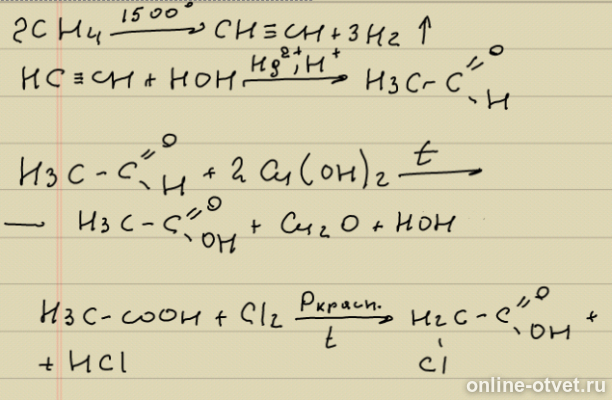 2CH4 1500° → CH≡CH + 3H2 ↑
HC≡CH + HOH Hg2+, H+ → H3C-C=O H
H3C-C=O H + 2Cu(OH)2 t →
— H3C-C=O OH + Cu2O + HOH
H3C-COOH + Cl2 Pкрасн. t → H2C-C=O OH +
Cl
+ HCl
online-otvet.ru